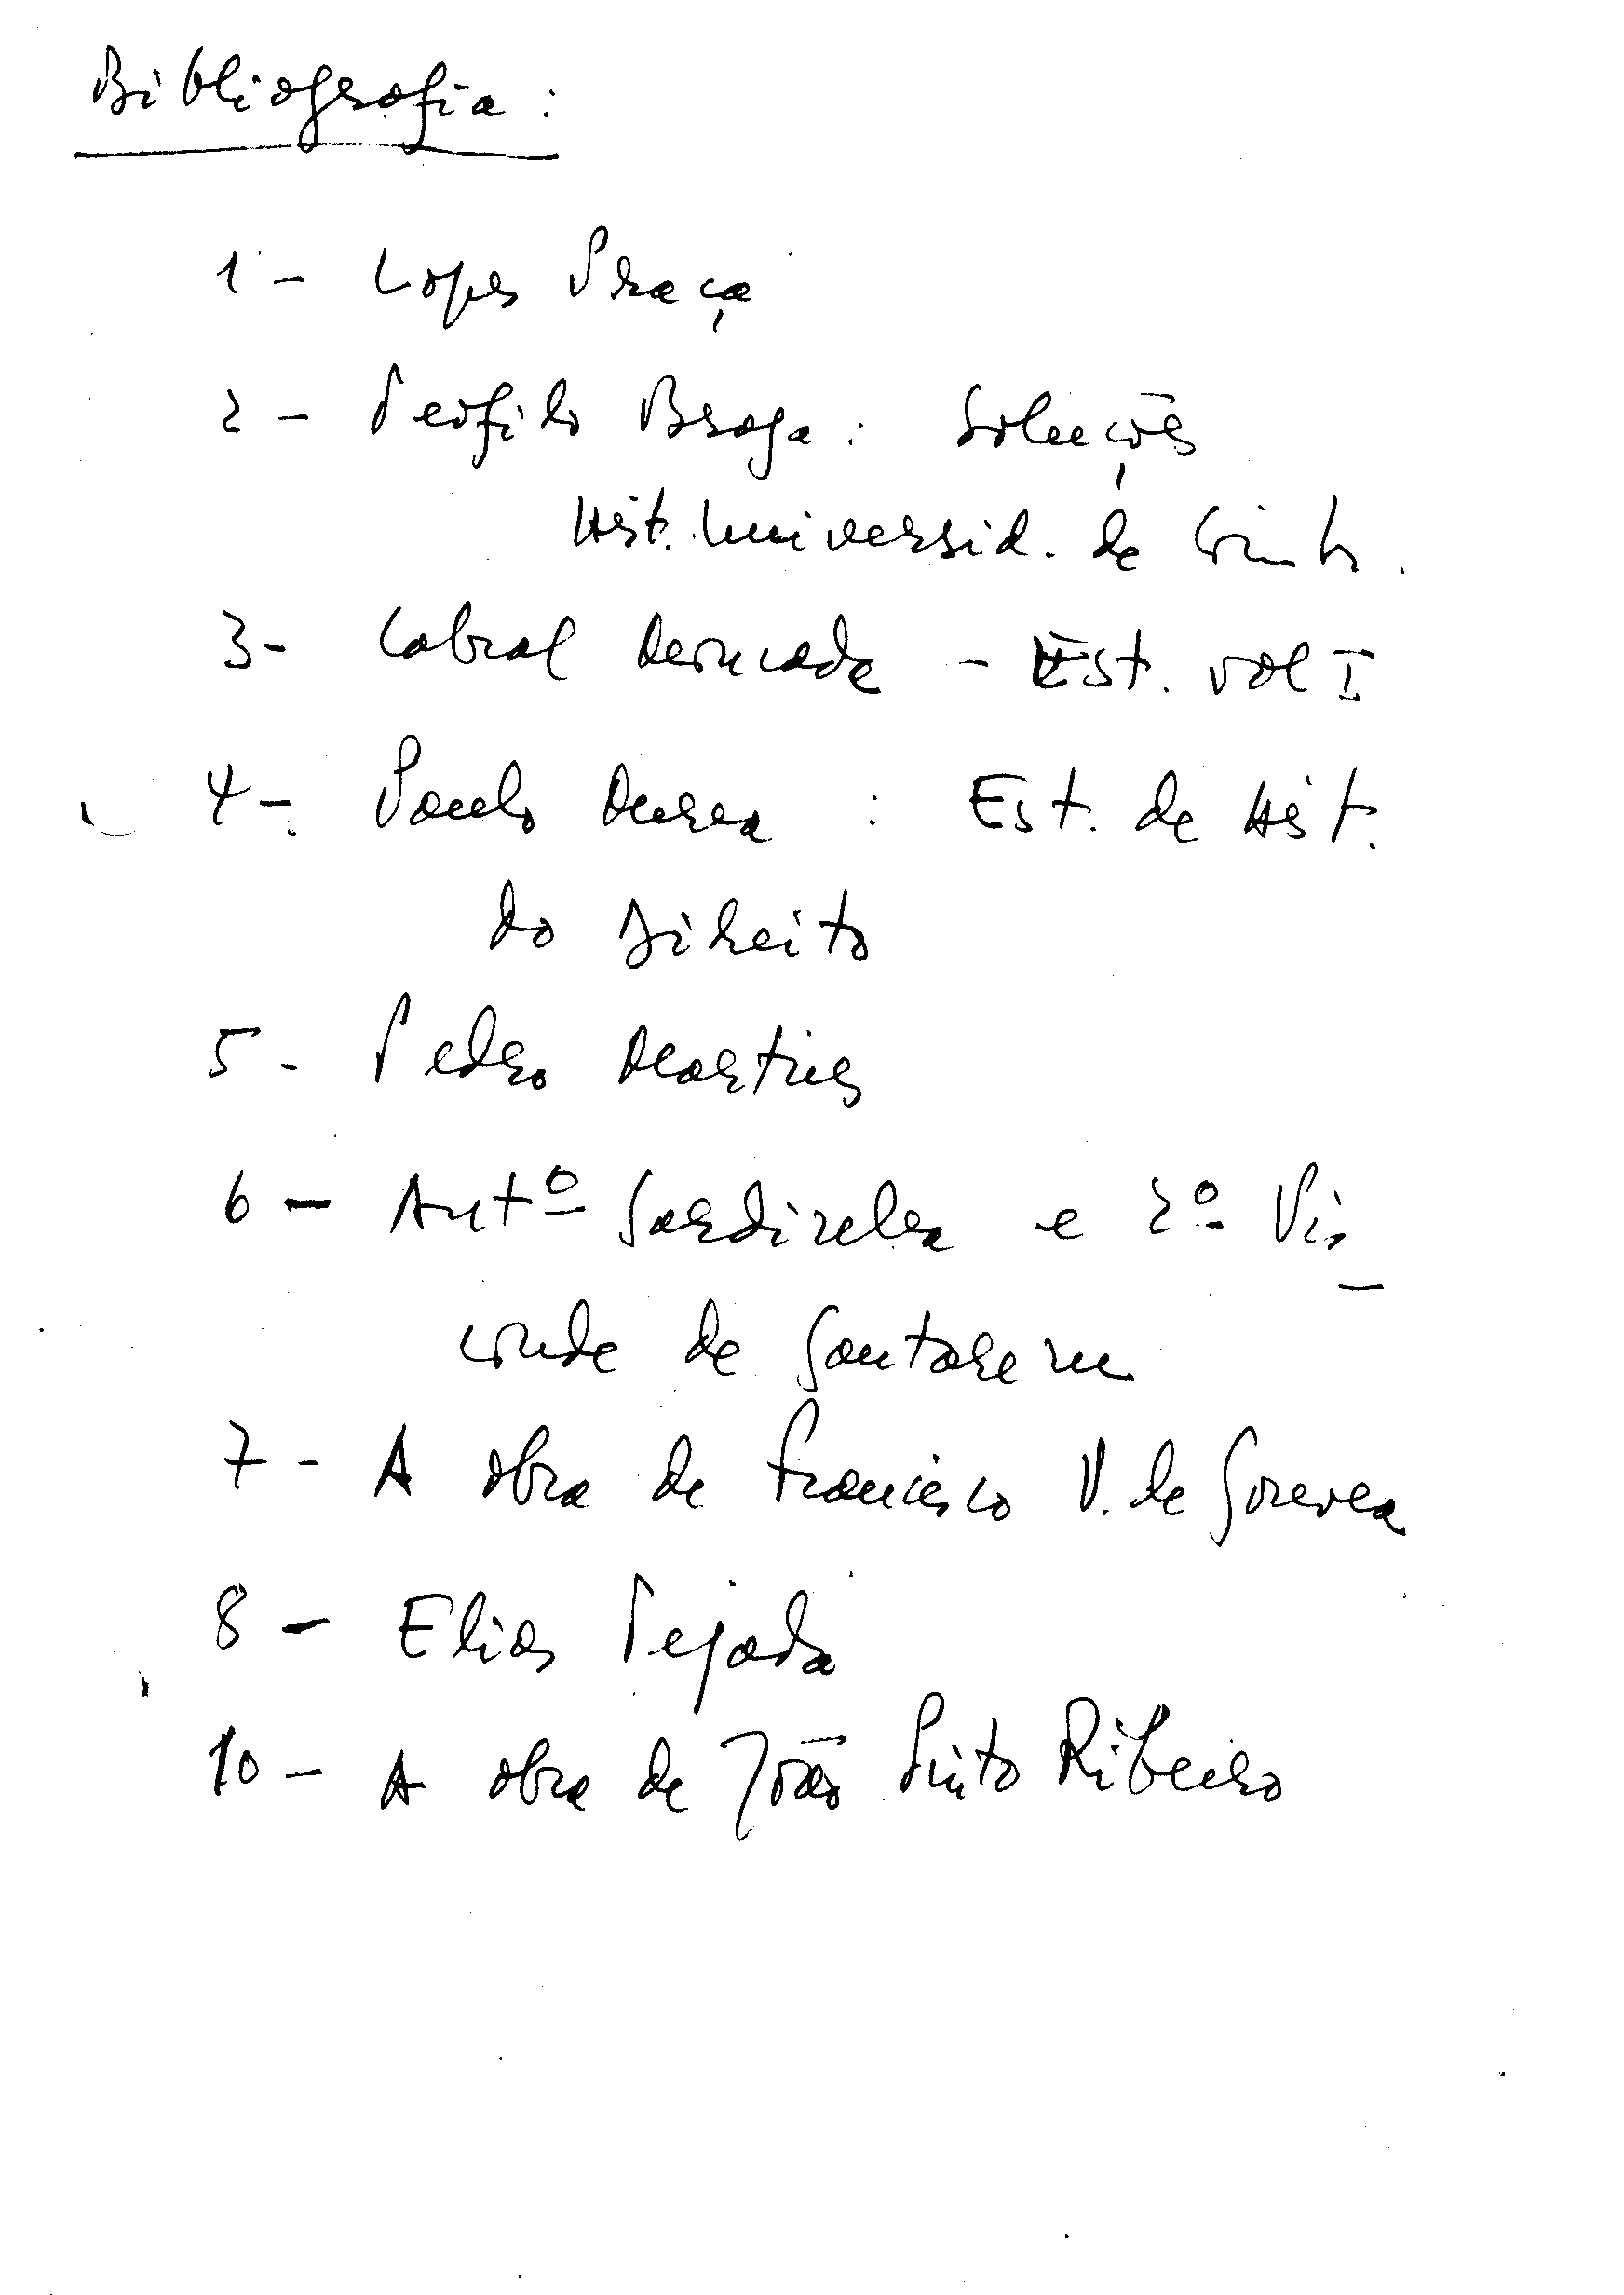 Bibliografia:
1 - Lopes Praça
2 - Teofilo Braga: Soluções
Hist. Universid. de Coimb.
3 - Cabral Moncada - Est. vol I
4 - Paulo Merea : Est. de Hist.
do Direito
5 - Pedro Martins
6 - Antº Sardinha e 2º Vis
conde de Santarem
7 - A obra de Francisco V. de Gouvea
8 - Elias Tejada
10 - A obra de João Pinto Ribeiro